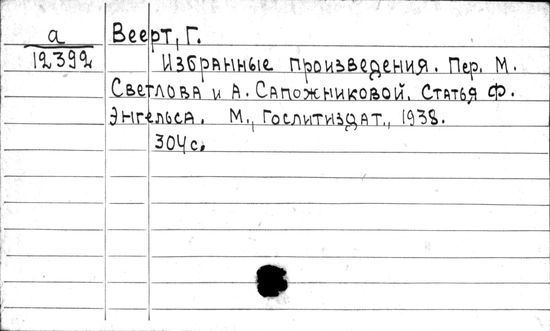 а Веерт, Г.
12392 Избранные произведения. Пер. М.
Светлова и А. Сапожниковой. Статья Ф.
Энгельса. М., Гослитиздат., 1938.
304 с.